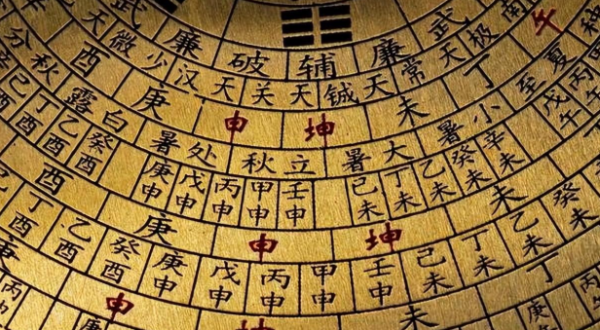 武 廉 破 辅 廉 武
天 微 少 汉 天 关 天 钺 天 常 天 极 南
酉 庚 申 坤 未 丁 午
分 秋 露 白 暑 处 秋 立 暑 大 暑 小 至 夏
丁酉 乙酉 癸酉 庚申 戊申 丙申 甲申 壬申 己未 丁未 乙未 癸未 辛未 戊午 丙午
酉 庚 申 坤 未 丁
丁酉 乙酉 癸酉 庚申 戊申 丙申 甲申 壬申 己未 丁未 乙未 癸未
丙申 申 坤 庚